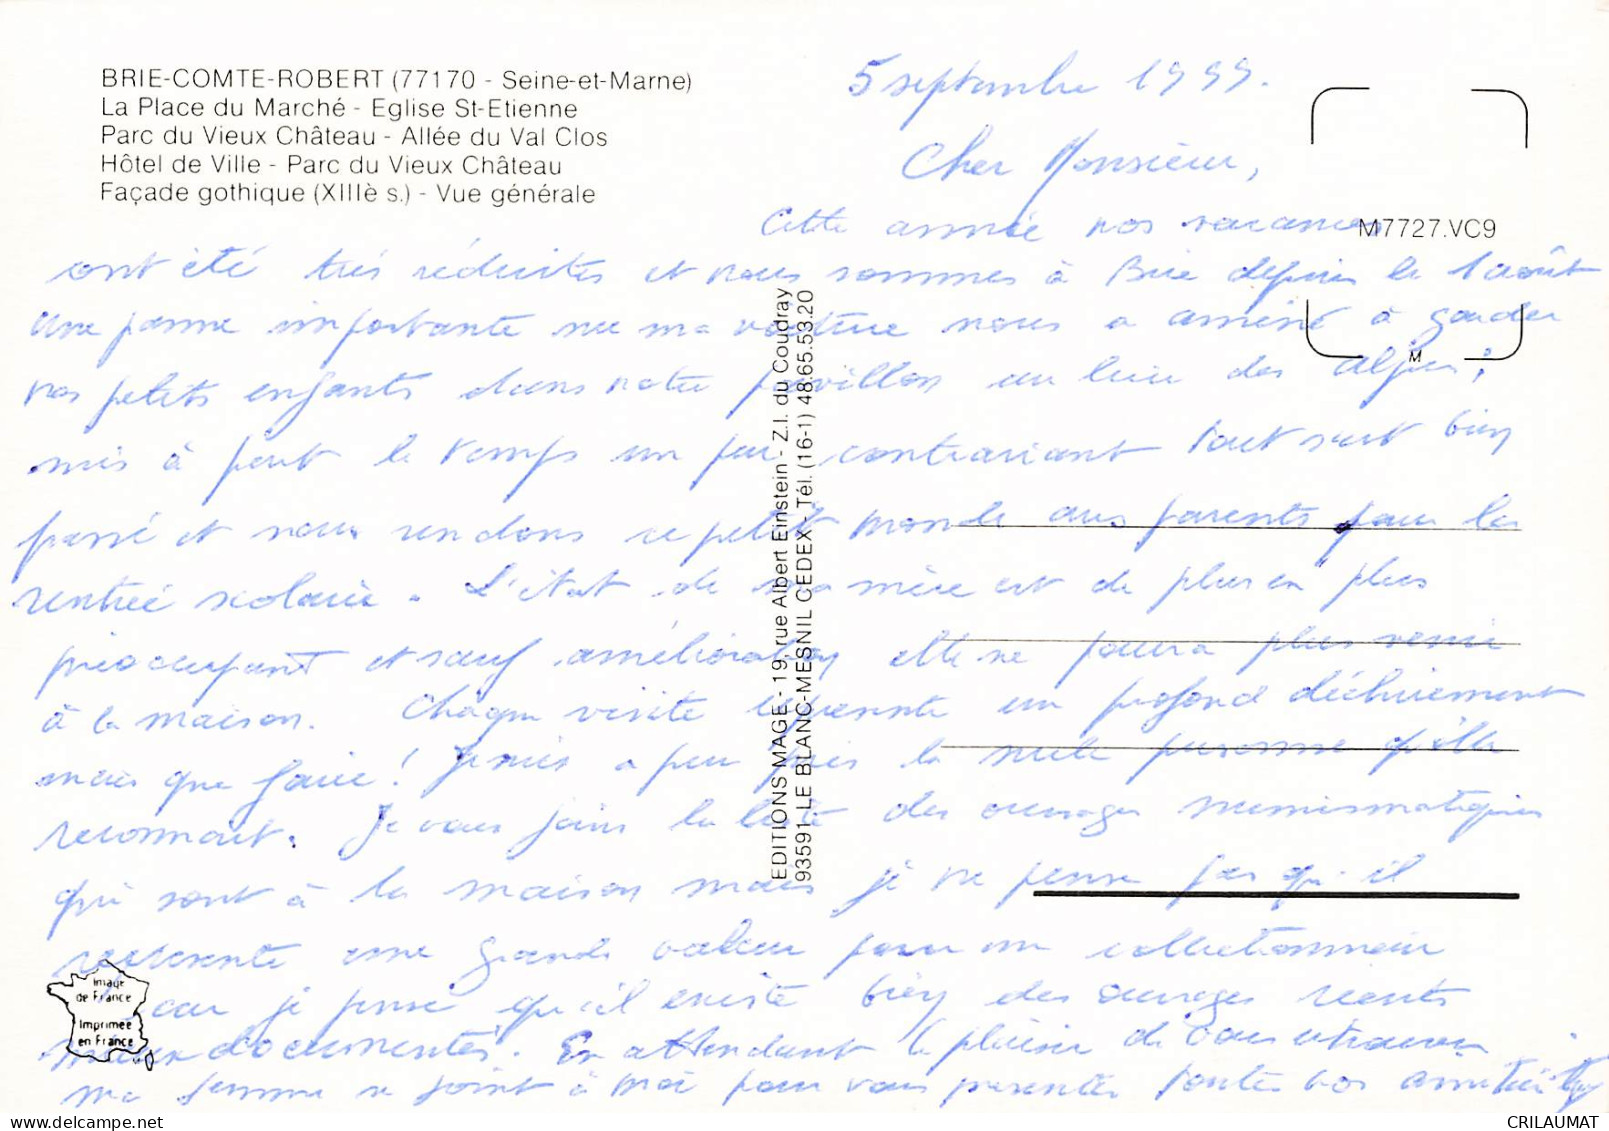 BRIE-COMTE-ROBERT (77170 - Seine-et-Marne)
La Place du Marché - Eglise St-Etienne
Parc du Vieux Château - Allée du Val Clos
Hôtel de Ville - Parc du Vieux Château
Façade gothique (XIIIè s.) - Vue générale
5 septembre 1999.
Cher Monsieur,
M7727.VC9
Cette année nos vacances
ont été très réduites et nous sommes à Brie depuis le 1 août
Une panne importante sur ma voiture nous a amené à garder
nos petits enfants dans notre pavillon au lieu des alpes;
M
mis à part le temps un peu contrariant tout s'est bien
passé et nous rendons ce petit monde aux parents pour la
rentrée scolaire. L'état de ma mère est de plus en plus
préoccupant et sauf amélioration elle ne pourra plus venir
à la maison. Chaque visite représente un profond déchirement
mais que faire! Je suis a peu près la seule personne qu'elle
reconnait. Je vous joins la liste des ouvrages numismatiques
qui sont à la maison mais je ne pense pas qu'il
représente une grande valeur pour un collectionneur
car je pense qu'il existe bien des ouvrages récents
mieux documentés. En attendant le plaisir de vous
ma femme se joint à moi pour vous présenter toutes nos amitiés
EDITIONS IMAGE - 19, rue Albert Einstein - Z.I. du Coudray
93591 LE BLANC-MESNIL CEDEX - Tél. (16-1) 48.65.53.20
Image
de France
Imprimée
en France
CRILAUMAT